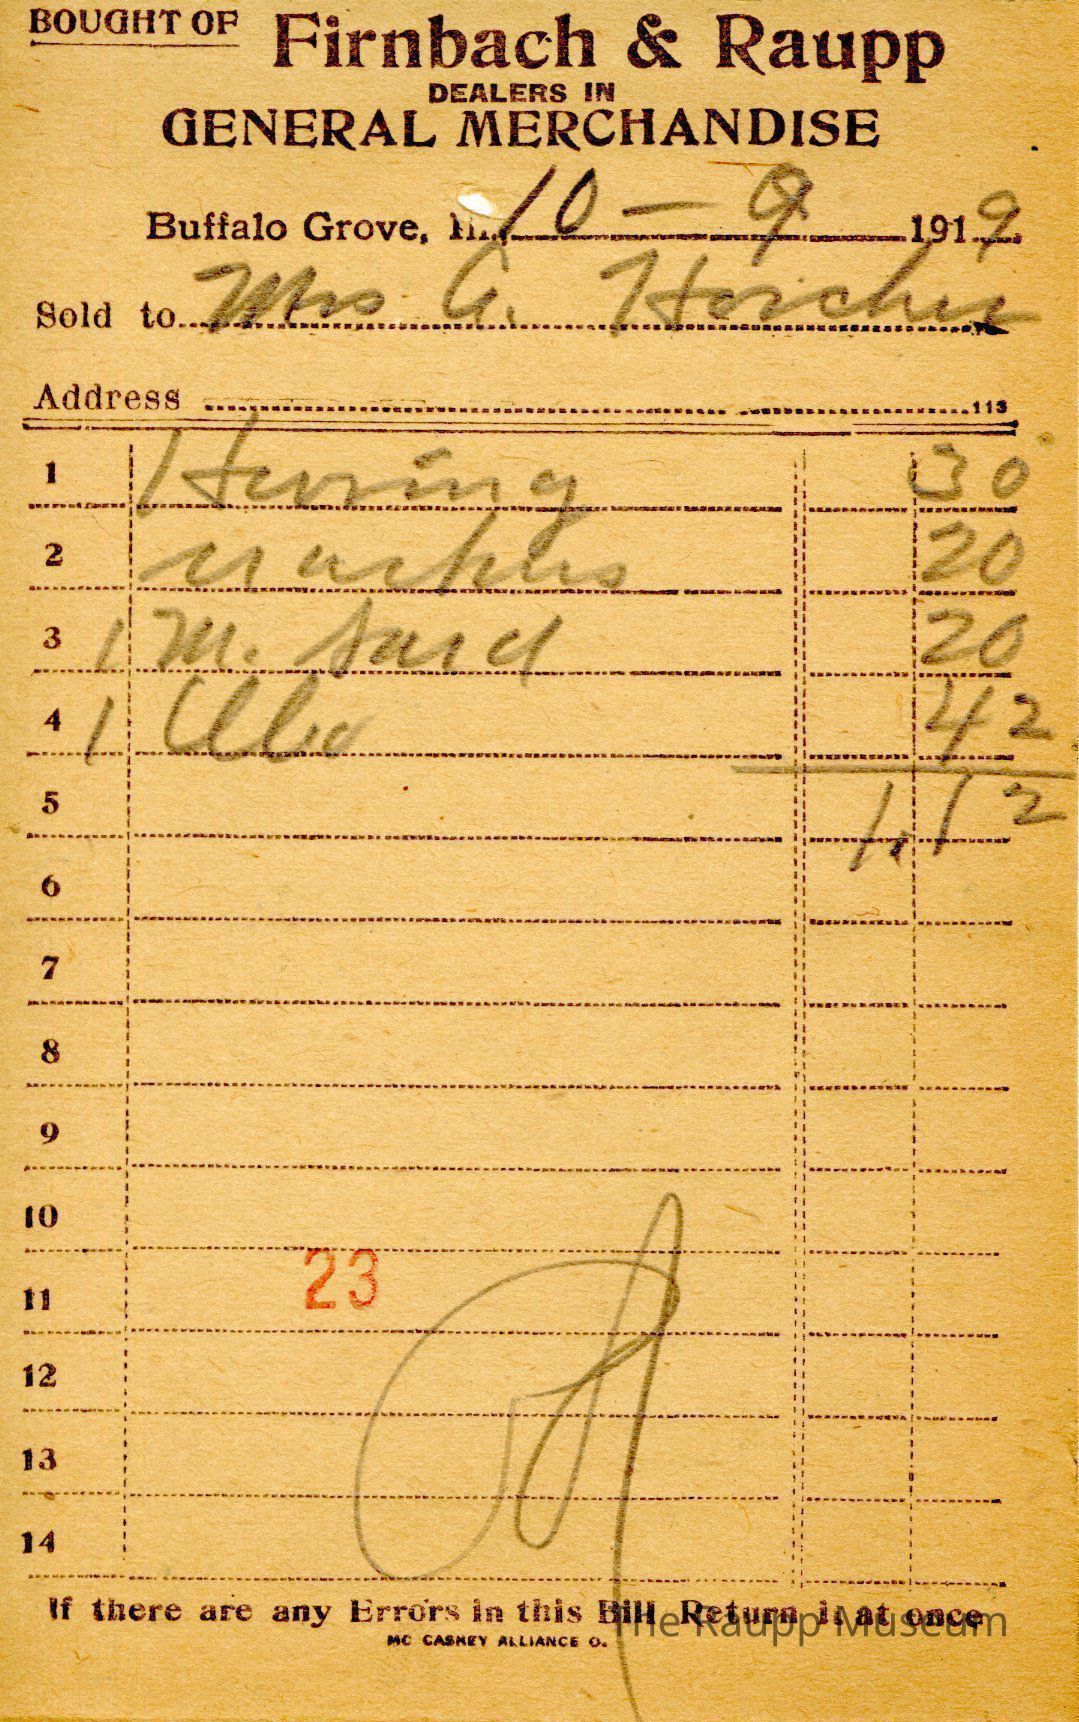 BOUGHT OF Firnbach & Raupp
DEALERS IN
GENERAL MERCHANDISE
Buffalo Grove, Ill., 10 - 9 1919
Sold to Mrs A. Horcher
Address 113
1 Herring 30
2 crackers 20
3 1 M. Sard 20
4 1 42
5 1.12
6
7
8
9
10
23
11
12
13
14
If there are any Errors in this Bill Return it at once
The Raupp Museum
MC CASKEY ALLIANCE O.